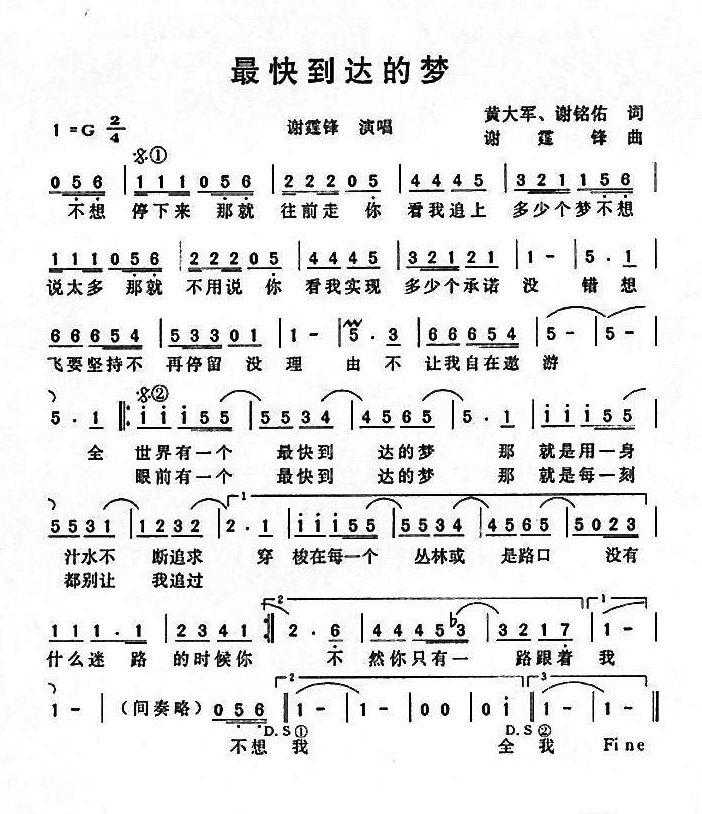 最快到达的梦
1=G 2/4 谢霆锋 演唱 黄大军、谢铭佑 词
谢霆锋 曲
𝄋①
0 5 6 | 1 1 1 0 5 6 | 2 2 2 0 5 | 4 4 4 5 | 3 2 1 1 5 6 |
不想 停下来 那就 往前走 你 看我追上 多少个梦不想
1 1 1 0 5 6 | 2 2 2 0 5 | 4 4 4 5 | 3 2 1 2 1 | 1 - | 5 . 1 |
说太多 那就 不用说 你 看我实现 多少个承诺 没 错 想
6 6 6 5 4 | 5 3 3 0 1 | 1 - | 5 . 3 | 6 6 6 5 4 | 5 - | 5 - |
飞要坚持不 再停留 没 理 由 不 让我自在遨 游
𝄋②
5 . 1 |: i i i 5 5 | 5 5 3 4 | 4 5 6 5 | 5 . 1 | i i i 5 5 |
全 世界有一个 最快到 达的梦 那 就是用一身
眼前有一个 最快到 达的梦 那 就是每一刻
1
5 5 3 1 | 1 2 3 2 | 2 . 1 | i i i 5 5 | 5 5 3 4 | 4 5 6 5 | 5 0 2 3 |
汁水不 断追求 穿 梭在每一个 丛林或 是路口 没有
都别让 我追过
2 1
1 1 1 . 1 | 2 3 4 1 :| 2 . 6 | 4 4 4 5 ♭3 | 3 2 1 7 | 1 - |
什么迷 路 的时候你 不 然你只有一 路跟着 我
2 3
1 - | (间奏略) | 0 5 6 || 1 - | 1 - | 0 0 | 0 i || 1 - | 1 - ||
D.S① D.S②
不想 我 全 我 Fine